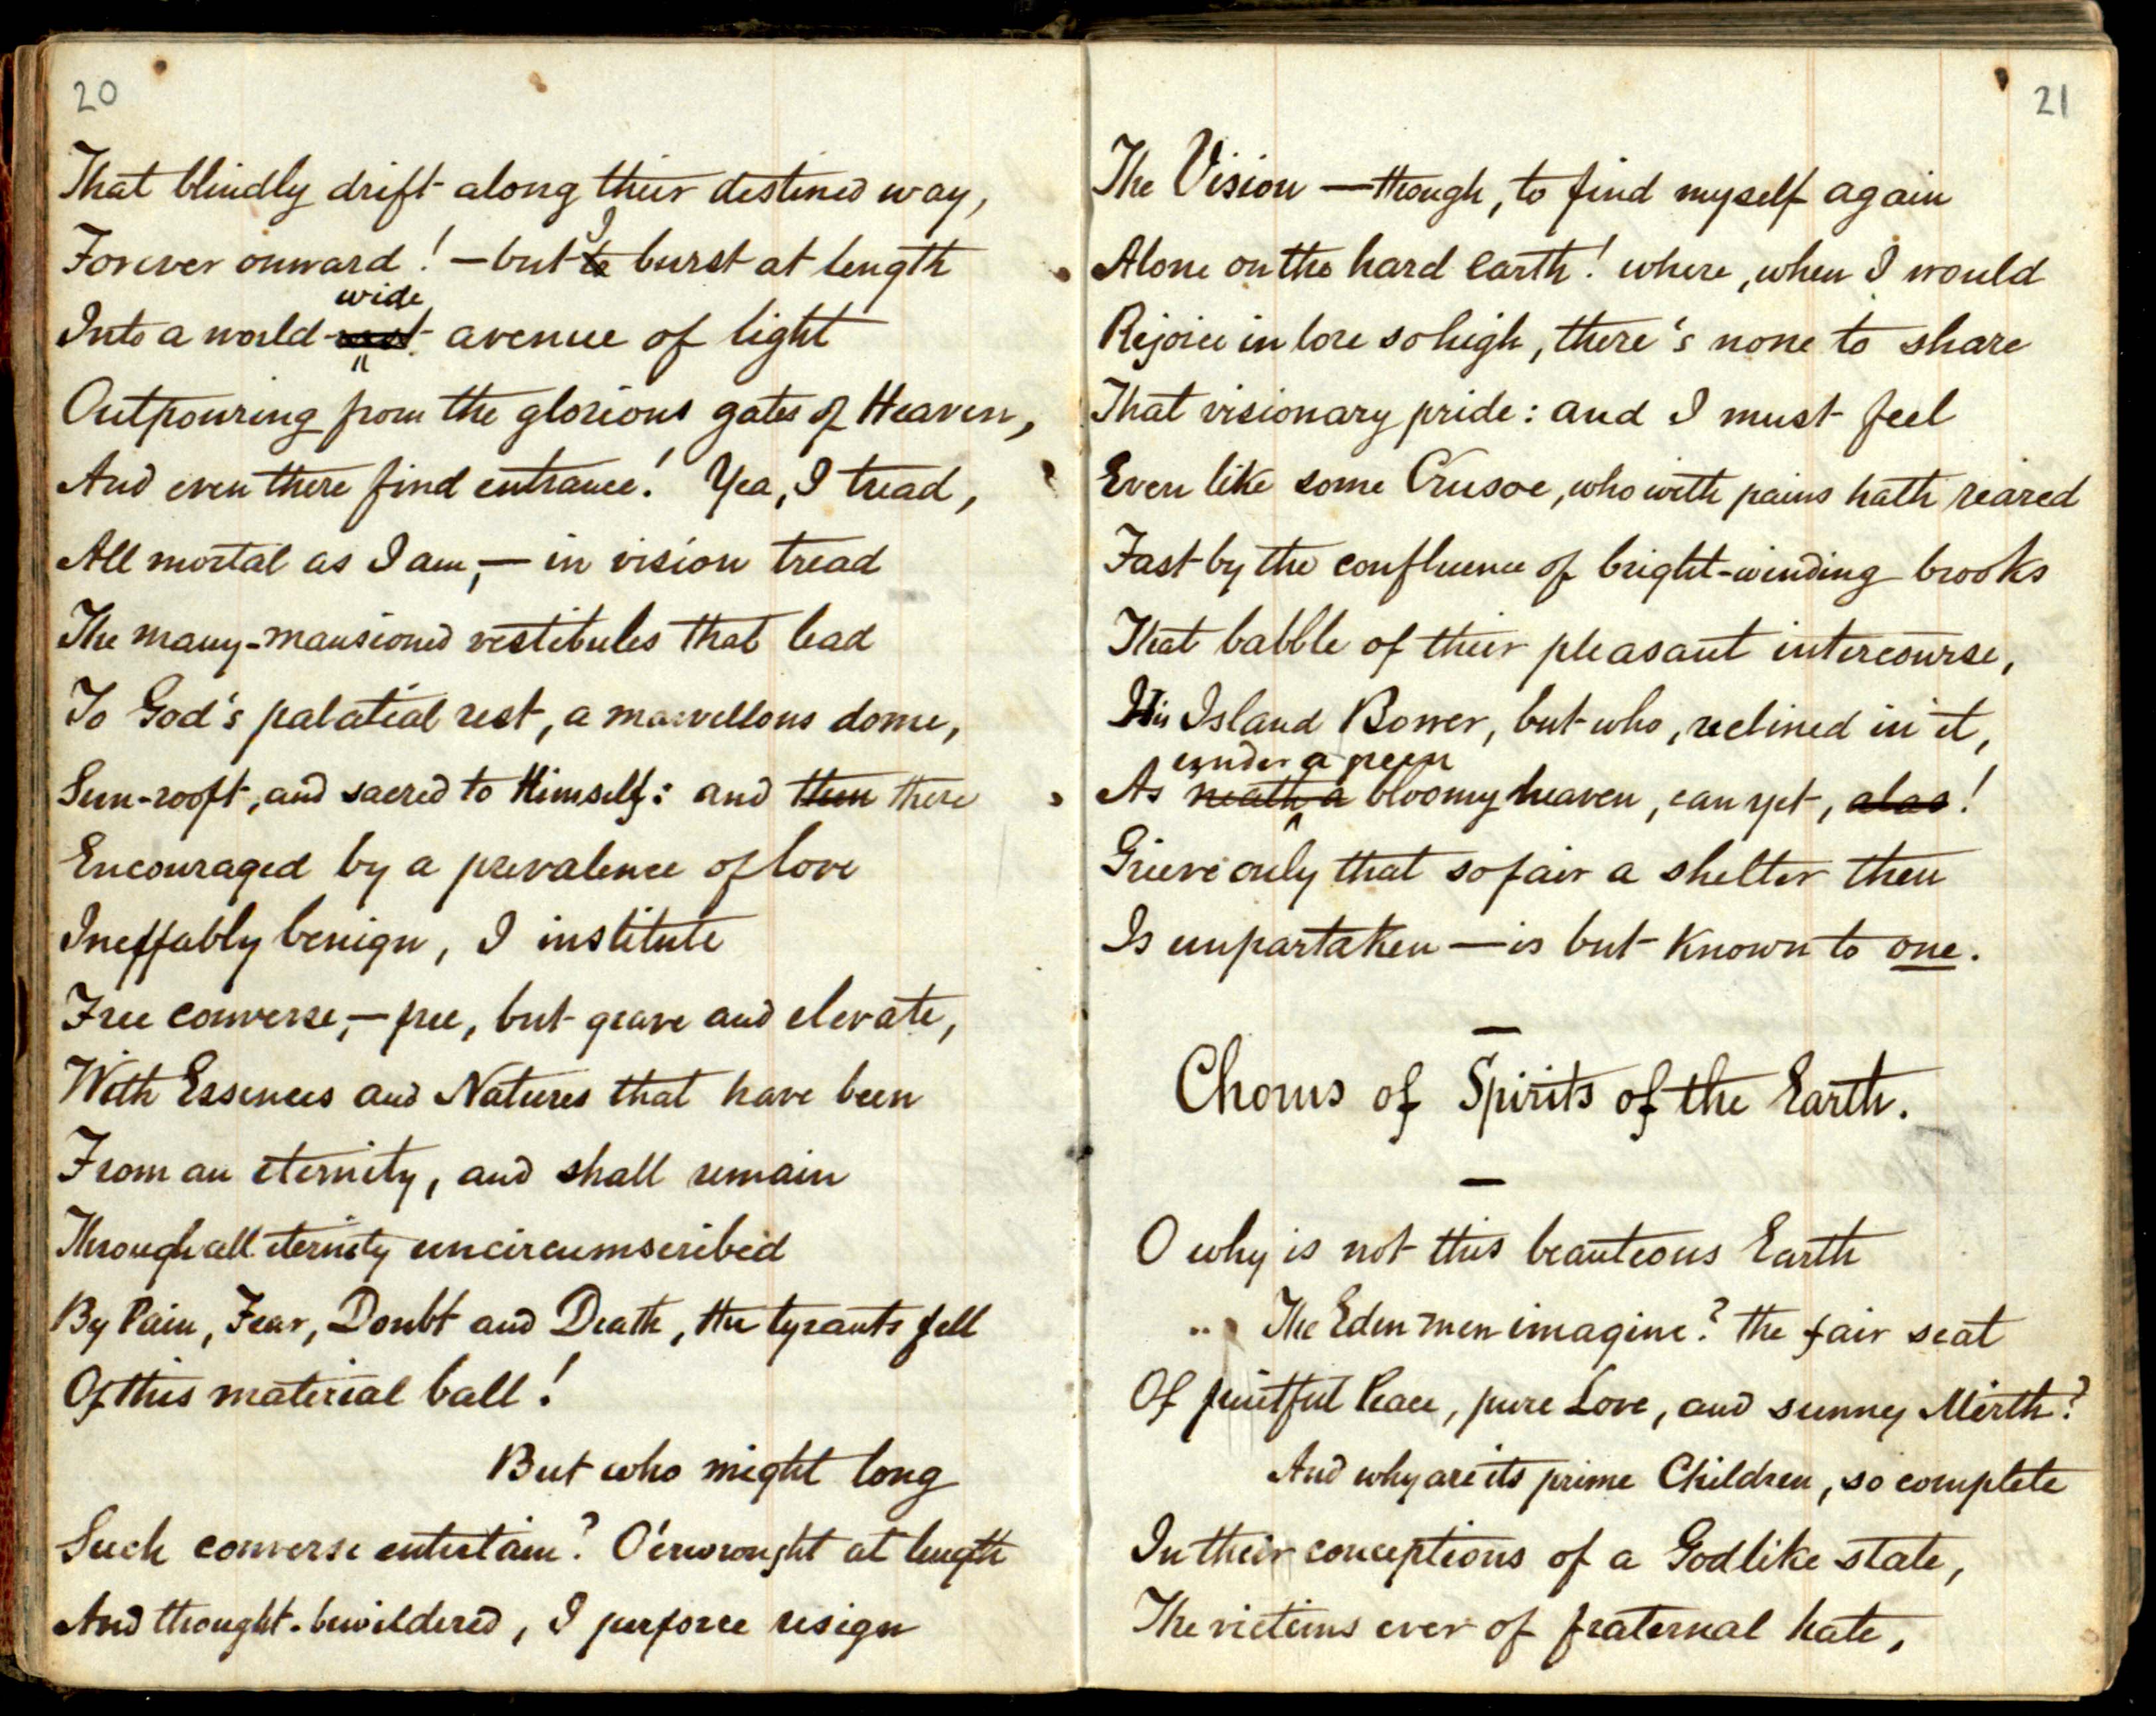 20
That blindly drift along their destined way,
Forever onward! — but I burst at length
Into a world-wide avenue of light
Outpouring from the glorious gates of Heaven,
And even there find entrance! Yea, I tread,
All mortal as I am, — in vision tread
The many-mansioned vestibules that lead
To God's palatial rest, a marvellous dome,
Sun-rooft, and sacred to Himself: and then there
Encouraged by a prevalence of love
Ineffably benign, I institute
Free converse, — free, but grave and elevate,
With Essences and Natures that have been
From an eternity, and shall remain
Through all eternity uncircumscribed
By Pain, Fear, Doubt and Death, the tyrants fell
Of this material ball!
But who might long
Such converse entertain? O'erwrought at length
And thought-bewildered, I perforce resign
21
The Vision — though, to find myself again
Alone on the hard earth! where, when I would
Rejoice in lore so high, there's none to share
That visionary pride: and I must feel
Even like some Crusoe, who with pains hath reared
Fast by the confluence of bright-winding brooks
That babble of their pleasant intercourse,
His Island Bower, but who, reclined in it,
under a green
As neath a bloomy heaven, can yet, alas!
Grieve only that so fair a shelter then
Is unpartaken — is but known to one.
Chorus of Spirits of the Earth.
O why is not this beauteous Earth
The Eden men imagine? the fair seat
Of fruitful Peace, pure Love, and sunny Mirth?
And why are its prime Children, so complete
In their conceptions of a Godlike state,
The victims ever of fraternal hate,